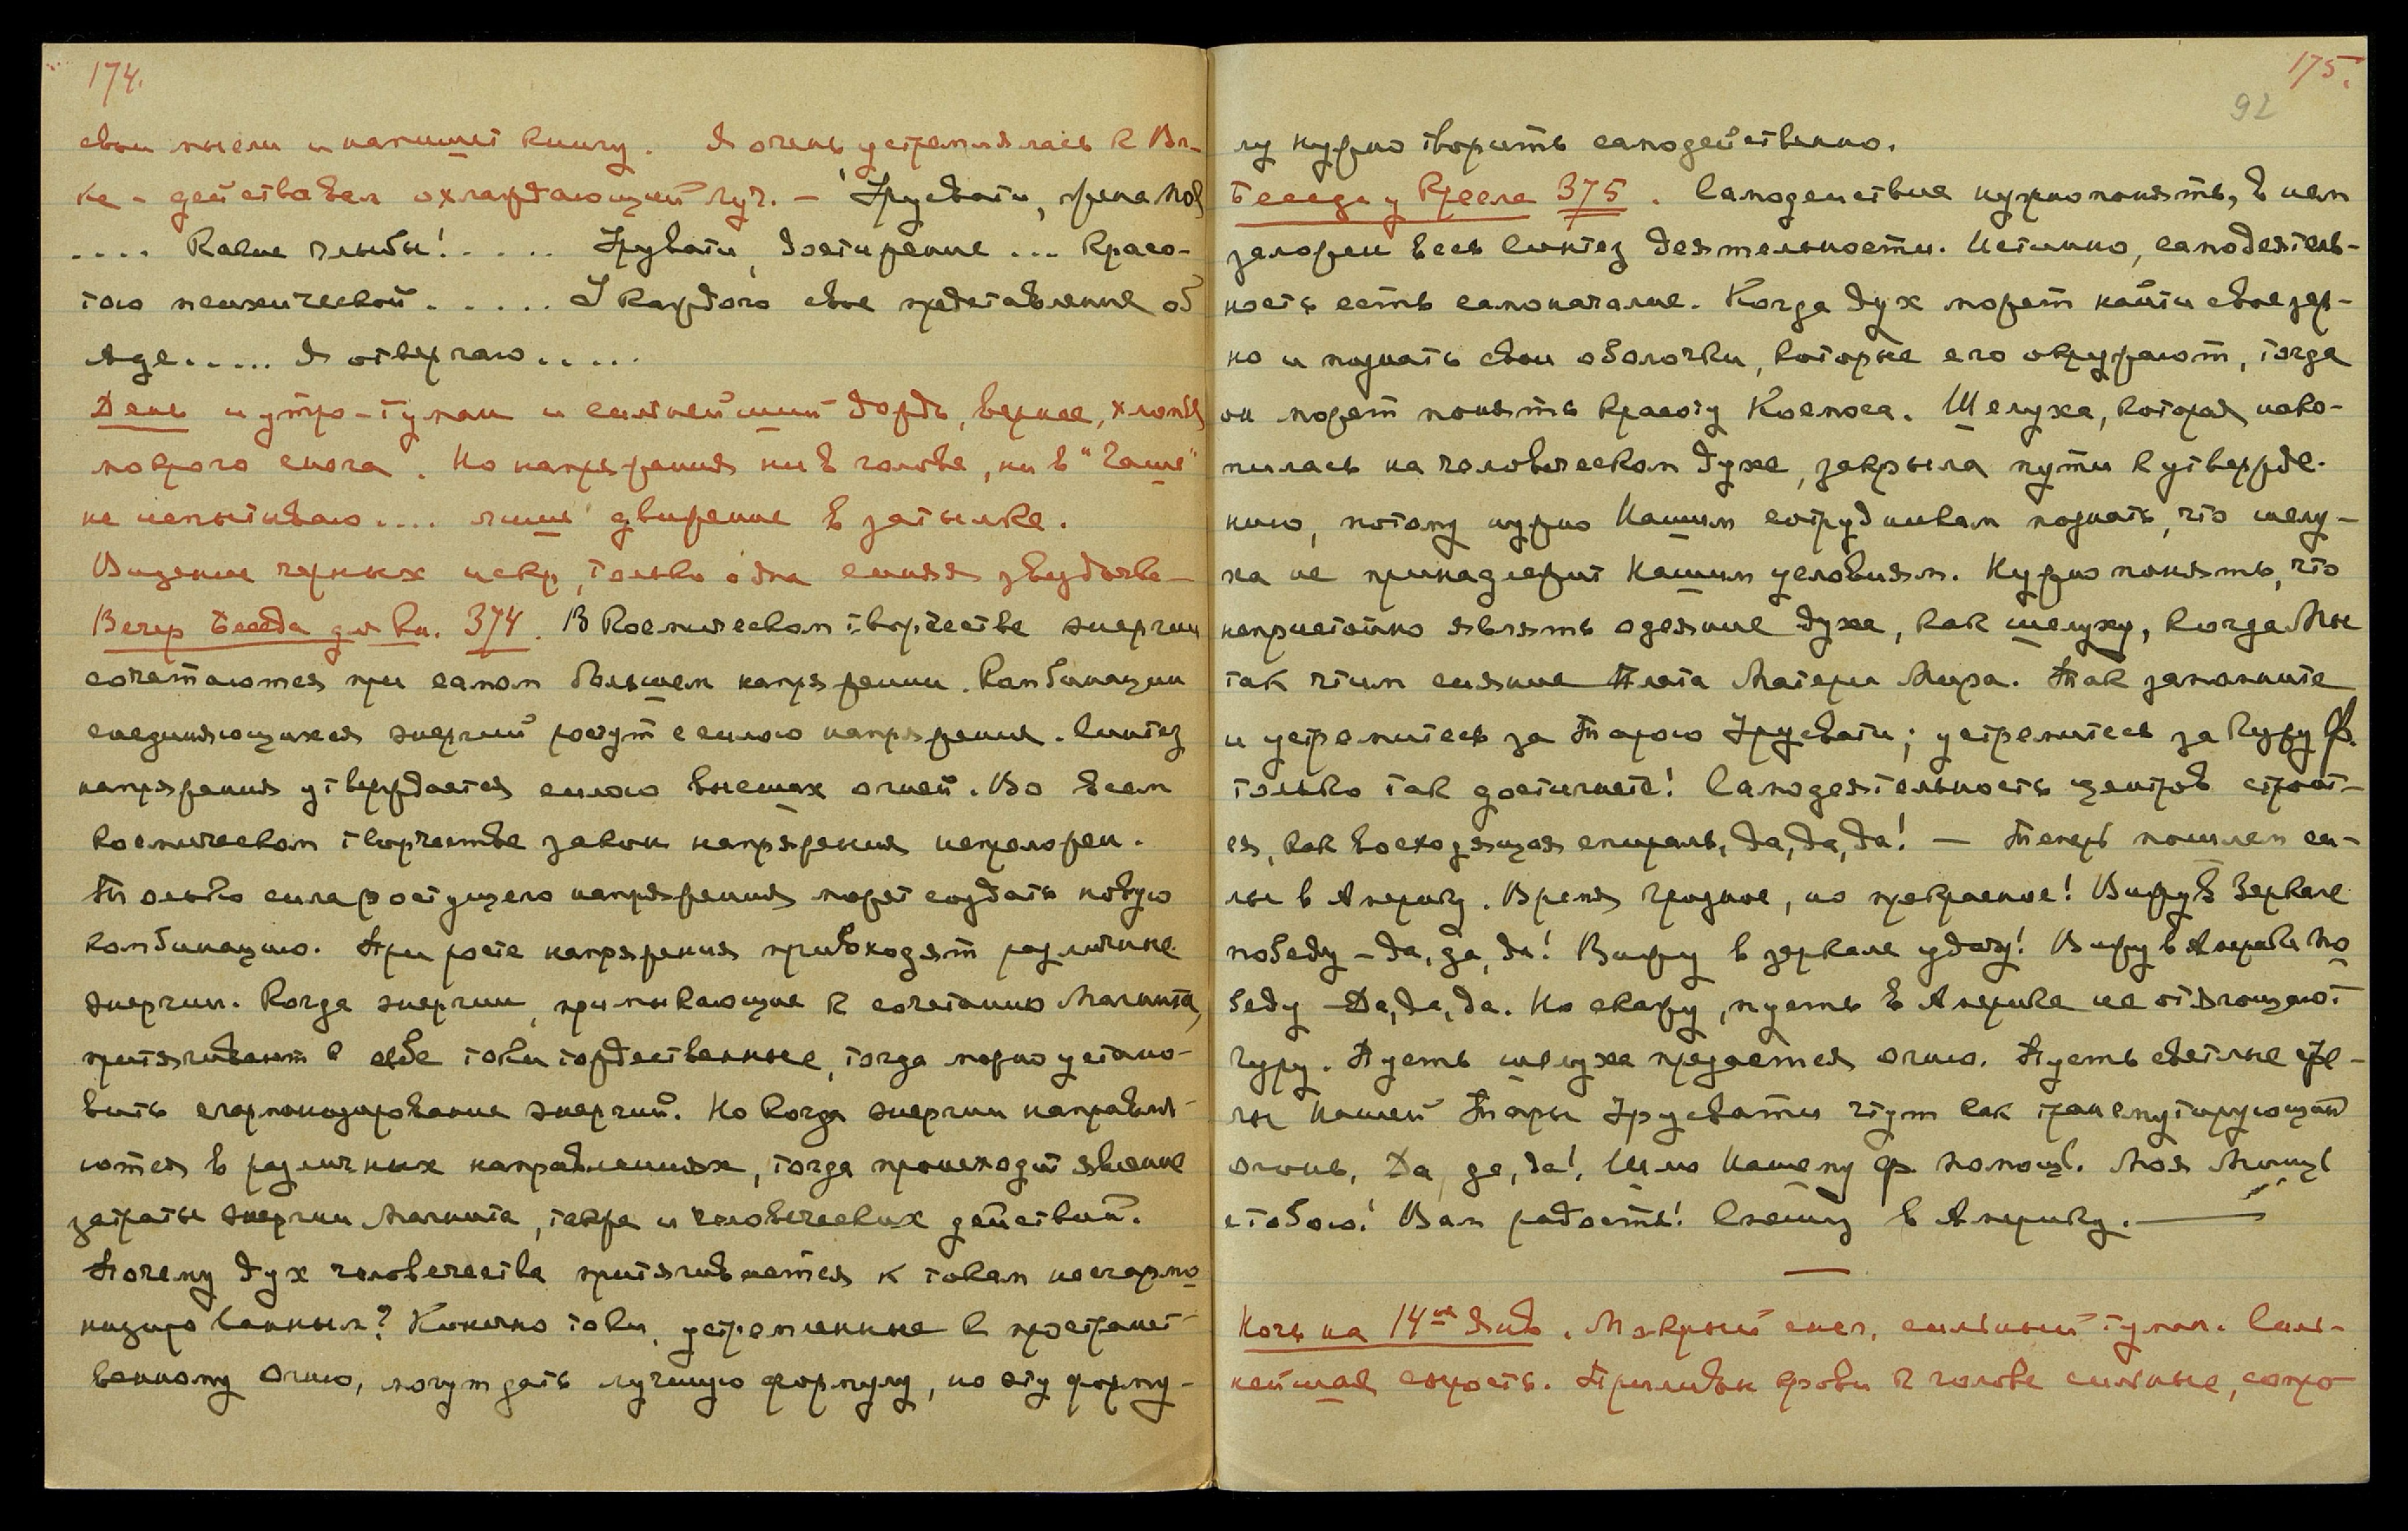 174.
свои мысли и напишет книгу. Я очень устремлялась к Вл-
ке – действовал охлаждающий луч. – Урусвати, жена Моя
.... Какие глыбы!..... Урувати, достижение ... красо-
тою психической..... У каждого свое представление об
Аде..... Я отвергаю.....
День и утро – туман и сильнейший дождь, вернее, хлопья
мокрого снега. Но напряжения ни в голове, ни в "Чаше"
не испытываю.... лишь движение в затылке.
Видение черных искр, только одна синяя звездочка –
Вечер Беседа для кн. 374. В космическом творчестве энергии
сочетаются при самом большем напряжении. Комбинации
соединяющихся энергий растут с силою напряжения. Синтез
напряжения утверждается силою высших огней. Во всем
космическом творчестве закон напряжения непреложен.
Только сила растущего напряжения может создать новую
комбинацию. При росте напряжения привходят различные
энергии. Когда энергии, примыкающие к сочетанию Магнита,
притягивают к себе токи тождественные, тогда можно устано-
вить сгармонизирование энергий. Но когда энергии направля-
ются в различных направлениях, тогда происходит явление
затраты энергии Магнита, также и человеческих действий.
Почему дух человечества притягивается к токам несгармо-
низированным? Конечно токи, устремленные к пространст-
венному Огню, могут дать лучшую формулу, но эту форму-
175.
92
лу нужно творить самодейственно.
Беседа у Кресла 375. Самодействие нужно понять, в нем
заложен весь Синтез деятельности. Истинно, самодеятель-
ность есть самоначалие. Когда дух может найти свое зер-
но и познать свои оболочки, которые его окружают, тогда
он может понять красоту Космоса. Шелуха, которая нако-
пилась на человеческом духе, закрыла пути к утвержде-
нию, потому нужно Нашим сотрудникам познать, что шелу-
ха не принадлежит Нашим условиям. Нужно понять, что
непристойно являть одеяние духа, как шелуху, когда Мы
так чтим сияние Плата Матери Мира. Так запомните
и устремитесь за Тарою Урусвати; устремитесь за Гуру Ф.
только так достигнете! Самодеятельность центров строит-
ся, как восходящая спираль, да, да, да! – Теперь пошлем си-
лы в Америку. Время грозное, но прекрасное! Вижу в Зеркале
победу – да, да, да! Вижу в зеркале удачу! Вижу в Америке по-
беду – Да, да, да. Но скажу, пусть в Америке не отягощают
Гуру. Пусть шелуха предается огню. Пусть светлые си-
лы Нашей Тары Урусвати чтут как трансмутирующий
огонь, Да, да, да!. Шлю Нашему Ф. помощь. Моя Мощь
с тобою! Вам радость! Спешу в Америку. –
Ночь на 14ое Янв. Мокрый снег, сильный туман. Силь-
нейшая сырость. Приливы крови к голове сильные, сопро-